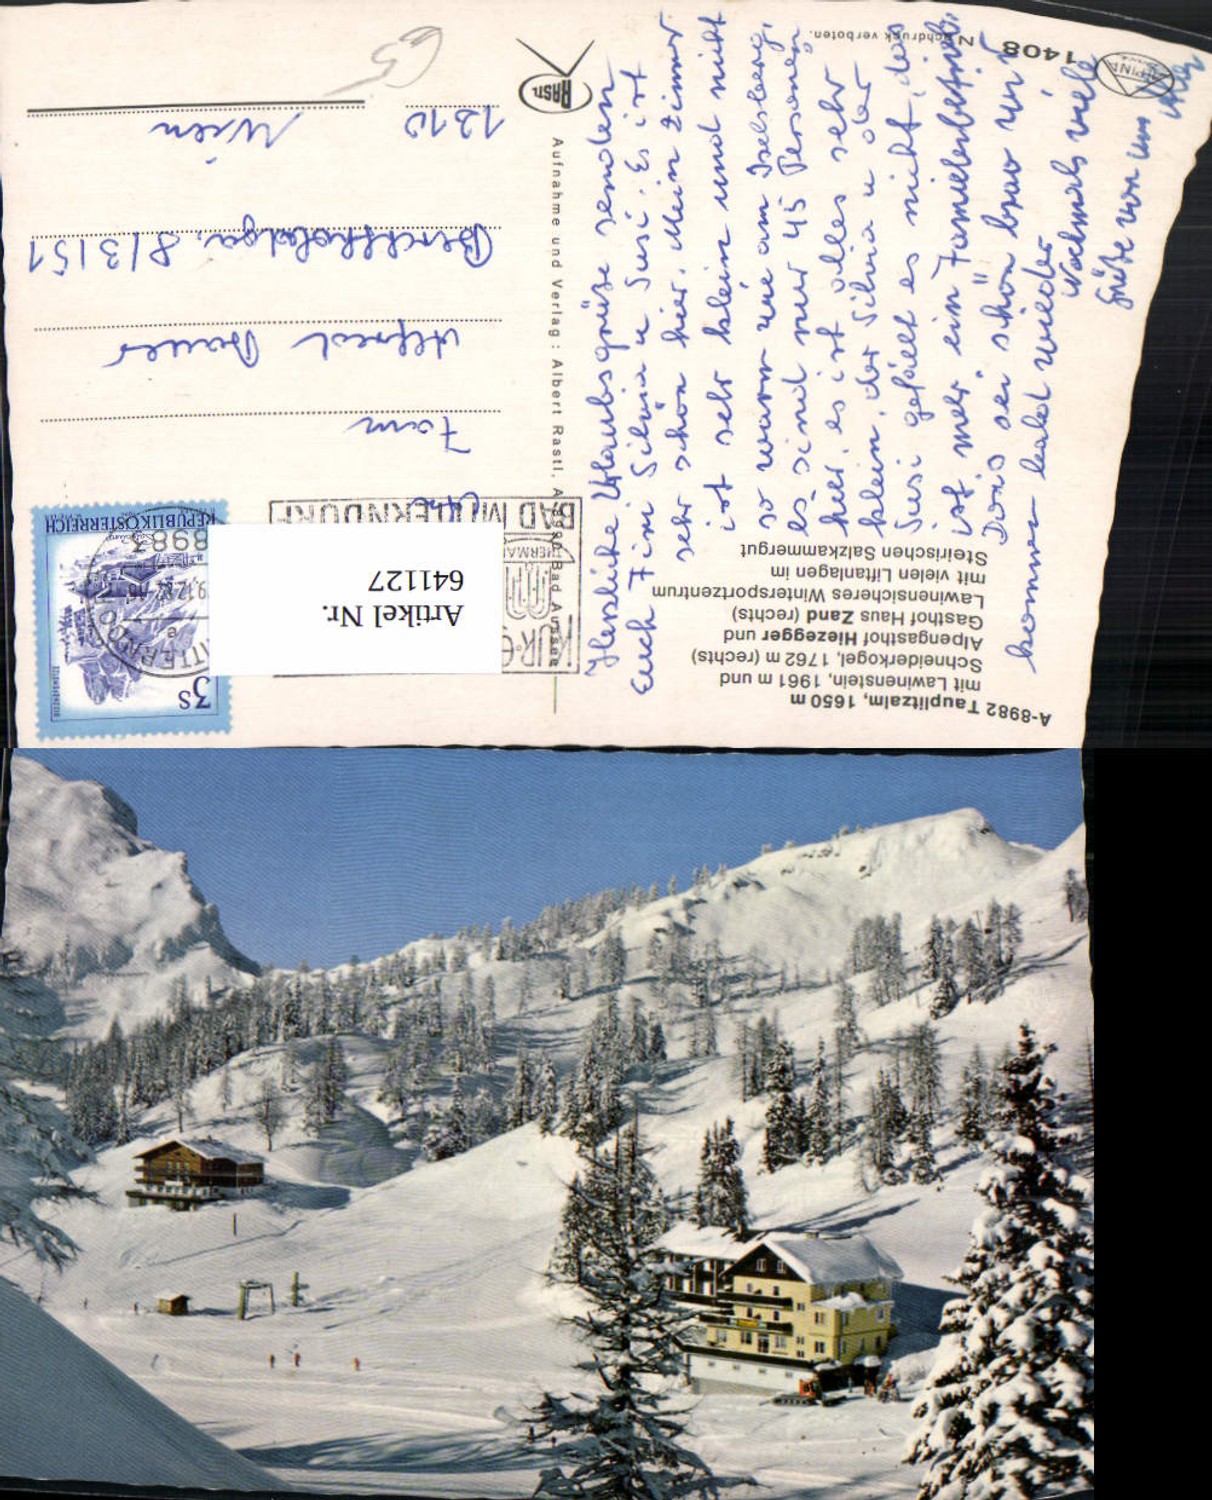 A-8982 Tauplitzalm, 1650 m
mit Lawinenstein, 1961 m und
Schneiderkogel, 1762 m (rechts)
Alpengasthof Hierzegger und
Gasthof Haus Zand (rechts)
Lawinensicheres Wintersportzentrum
mit vielen Liftanlagen im
Steirischen Salzkammergut
Herzliche Urlaubsgrüße senden
Euch Fini Silvia u Susi. Es ist
sehr schön hier. Mein Zimmer
ist sehr klein und nicht
so warm wie am Iselsberg,
es sind nur 45 Personen
hier, es ist alles sehr
klein, der Silvia u der
Susi gefällt es nicht, das
ist mehr ein Familienbetrieb,
Doris sei schön brav wir
kommen bald wieder
Nochmals viele
Grüße von uns allen
1408
Nachdruck verboten.
Aufnahme und Verlag: Albert Rastl, A-8990 Bad Aussee
RASTL
KUR
THERMAL
BAD MITTERNDORF
8983
REPUBLIK ÖSTERREICH
3S
Artikel Nr.
641127
Fam
Alfred Bauer
8/3/51
1210 Wien